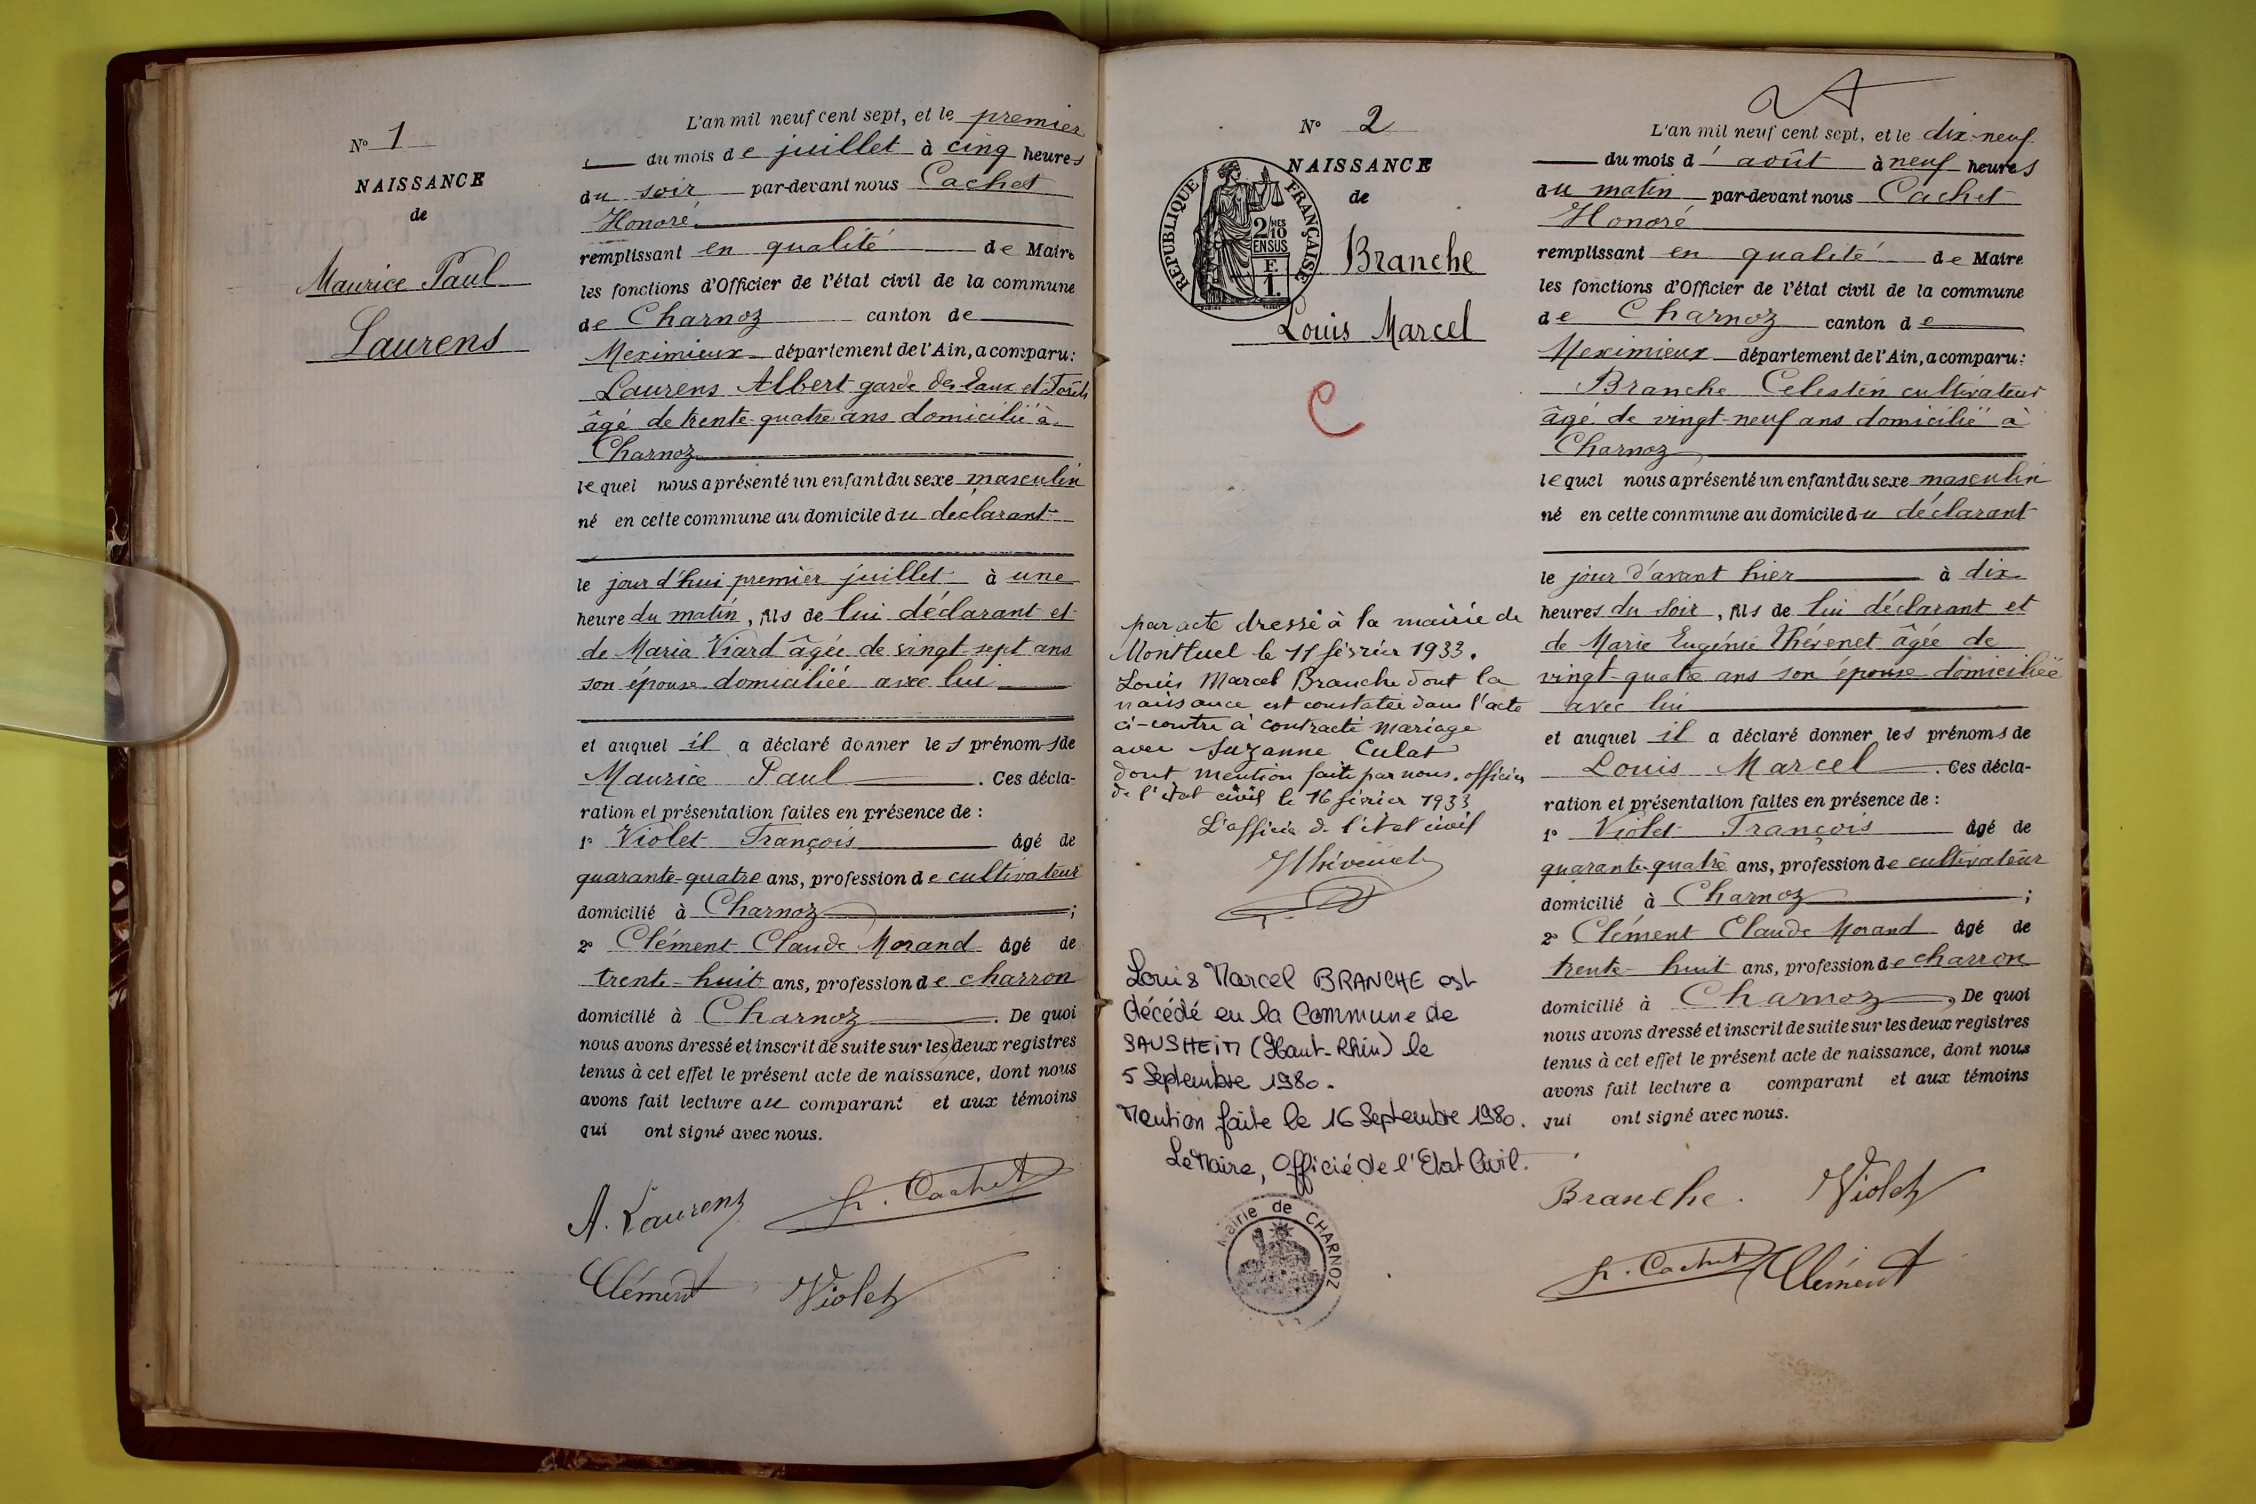 N° 1
NAISSANCE
de
Maurice Paul
Laurens
L'an mil neuf cent sept, et le premier
du mois de juillet à cinq heures
du soir par-devant nous Cachet
Honoré
remplissant en qualité de Maire
les fonctions d'Officier de l'état civil de la commune
de Charnoz canton de
Meximieux département de l'Ain, a comparu:
Laurens Albert garde des Eaux et Forêts
âgé de trente-quatre ans domicilié à
Charnoz
lequel nous a présenté un enfant du sexe masculin
né en cette commune au domicile du déclarant
le jour d'hui premier juillet à une
heure du matin, fils de lui déclarant et
de Maria Viard âgée de vingt sept ans
son épouse domiciliée avec lui
et auquel il a déclaré donner les prénoms de
Maurice Paul. Ces décla-
ration et présentation faites en présence de :
1° Violet François âgé de
quarante-quatre ans, profession de cultivateur
domicilié à Charnoz ;
2° Clément Claude Morand âgé de
trente-huit ans, profession de charron
domicilié à Charnoz. De quoi
nous avons dressé et inscrit de suite sur les deux registres
tenus à cet effet le présent acte de naissance, dont nous
avons fait lecture au comparant et aux témoins
qui ont signé avec nous.
A. Laurens h. Cachet
Clément Violet
N° 2
NAISSANCE
de
RÉPUBLIQUE FRANÇAISE
2/10 MES
EN SUS
F.
1.
Branche
Louis Marcel
C
par acte dressé à la mairie de
Montluel le 11 février 1933.
Louis Marcel Branche dont la
naissance est constatée dans l'acte
ci-contre à contracté mariage
avec Suzanne Culat
dont mention faite par nous, officier
de l'état civil le 16 février 1933
L'officier de l'état civil
Thévenet
Louis Marcel BRANCHE est
décédé en la Commune de
SAUSHEIM (Haut-Rhin) le
5 Septembre 1980.
Mention faite le 16 Septembre 1980.
Le Maire, Officié de l'Etat Civil.
Mairie de CHARNOZ
L'an mil neuf cent sept, et le dix-neuf
du mois d'août à neuf heures
du matin par-devant nous Cachet
Honoré
remplissant en qualité de Maire
les fonctions d'Officier de l'état civil de la commune
de Charnoz canton de
Meximieux département de l'Ain, a comparu:
Branche Celestin cultivateur
âgé de vingt-neuf ans domicilié à
Charnoz
lequel nous a présenté un enfant du sexe masculin
né en cette commune au domicile du déclarant
le jour d'avant hier à dix
heures du soir, fils de lui déclarant et
de Marie Eugénie Thévenet âgée de
vingt-quate ans son épouse domiciliée
avec lui
et auquel il a déclaré donner les prénoms de
Louis Marcel. Ces décla-
ration et présentation faites en présence de :
1° Violet François âgé de
quarante-quatre ans, profession de cultivateur
domicilié à Charnoz ;
2° Clément Claude Morand âgé de
trente-huit ans, profession de charron
domicilié à Charnoz, De quoi
nous avons dressé et inscrit de suite sur les deux registres
tenus à cet effet le présent acte de naissance, dont nous
avons fait lecture a comparant et aux témoins
qui ont signé avec nous.
Branche. Violet
h. Cachet Clément